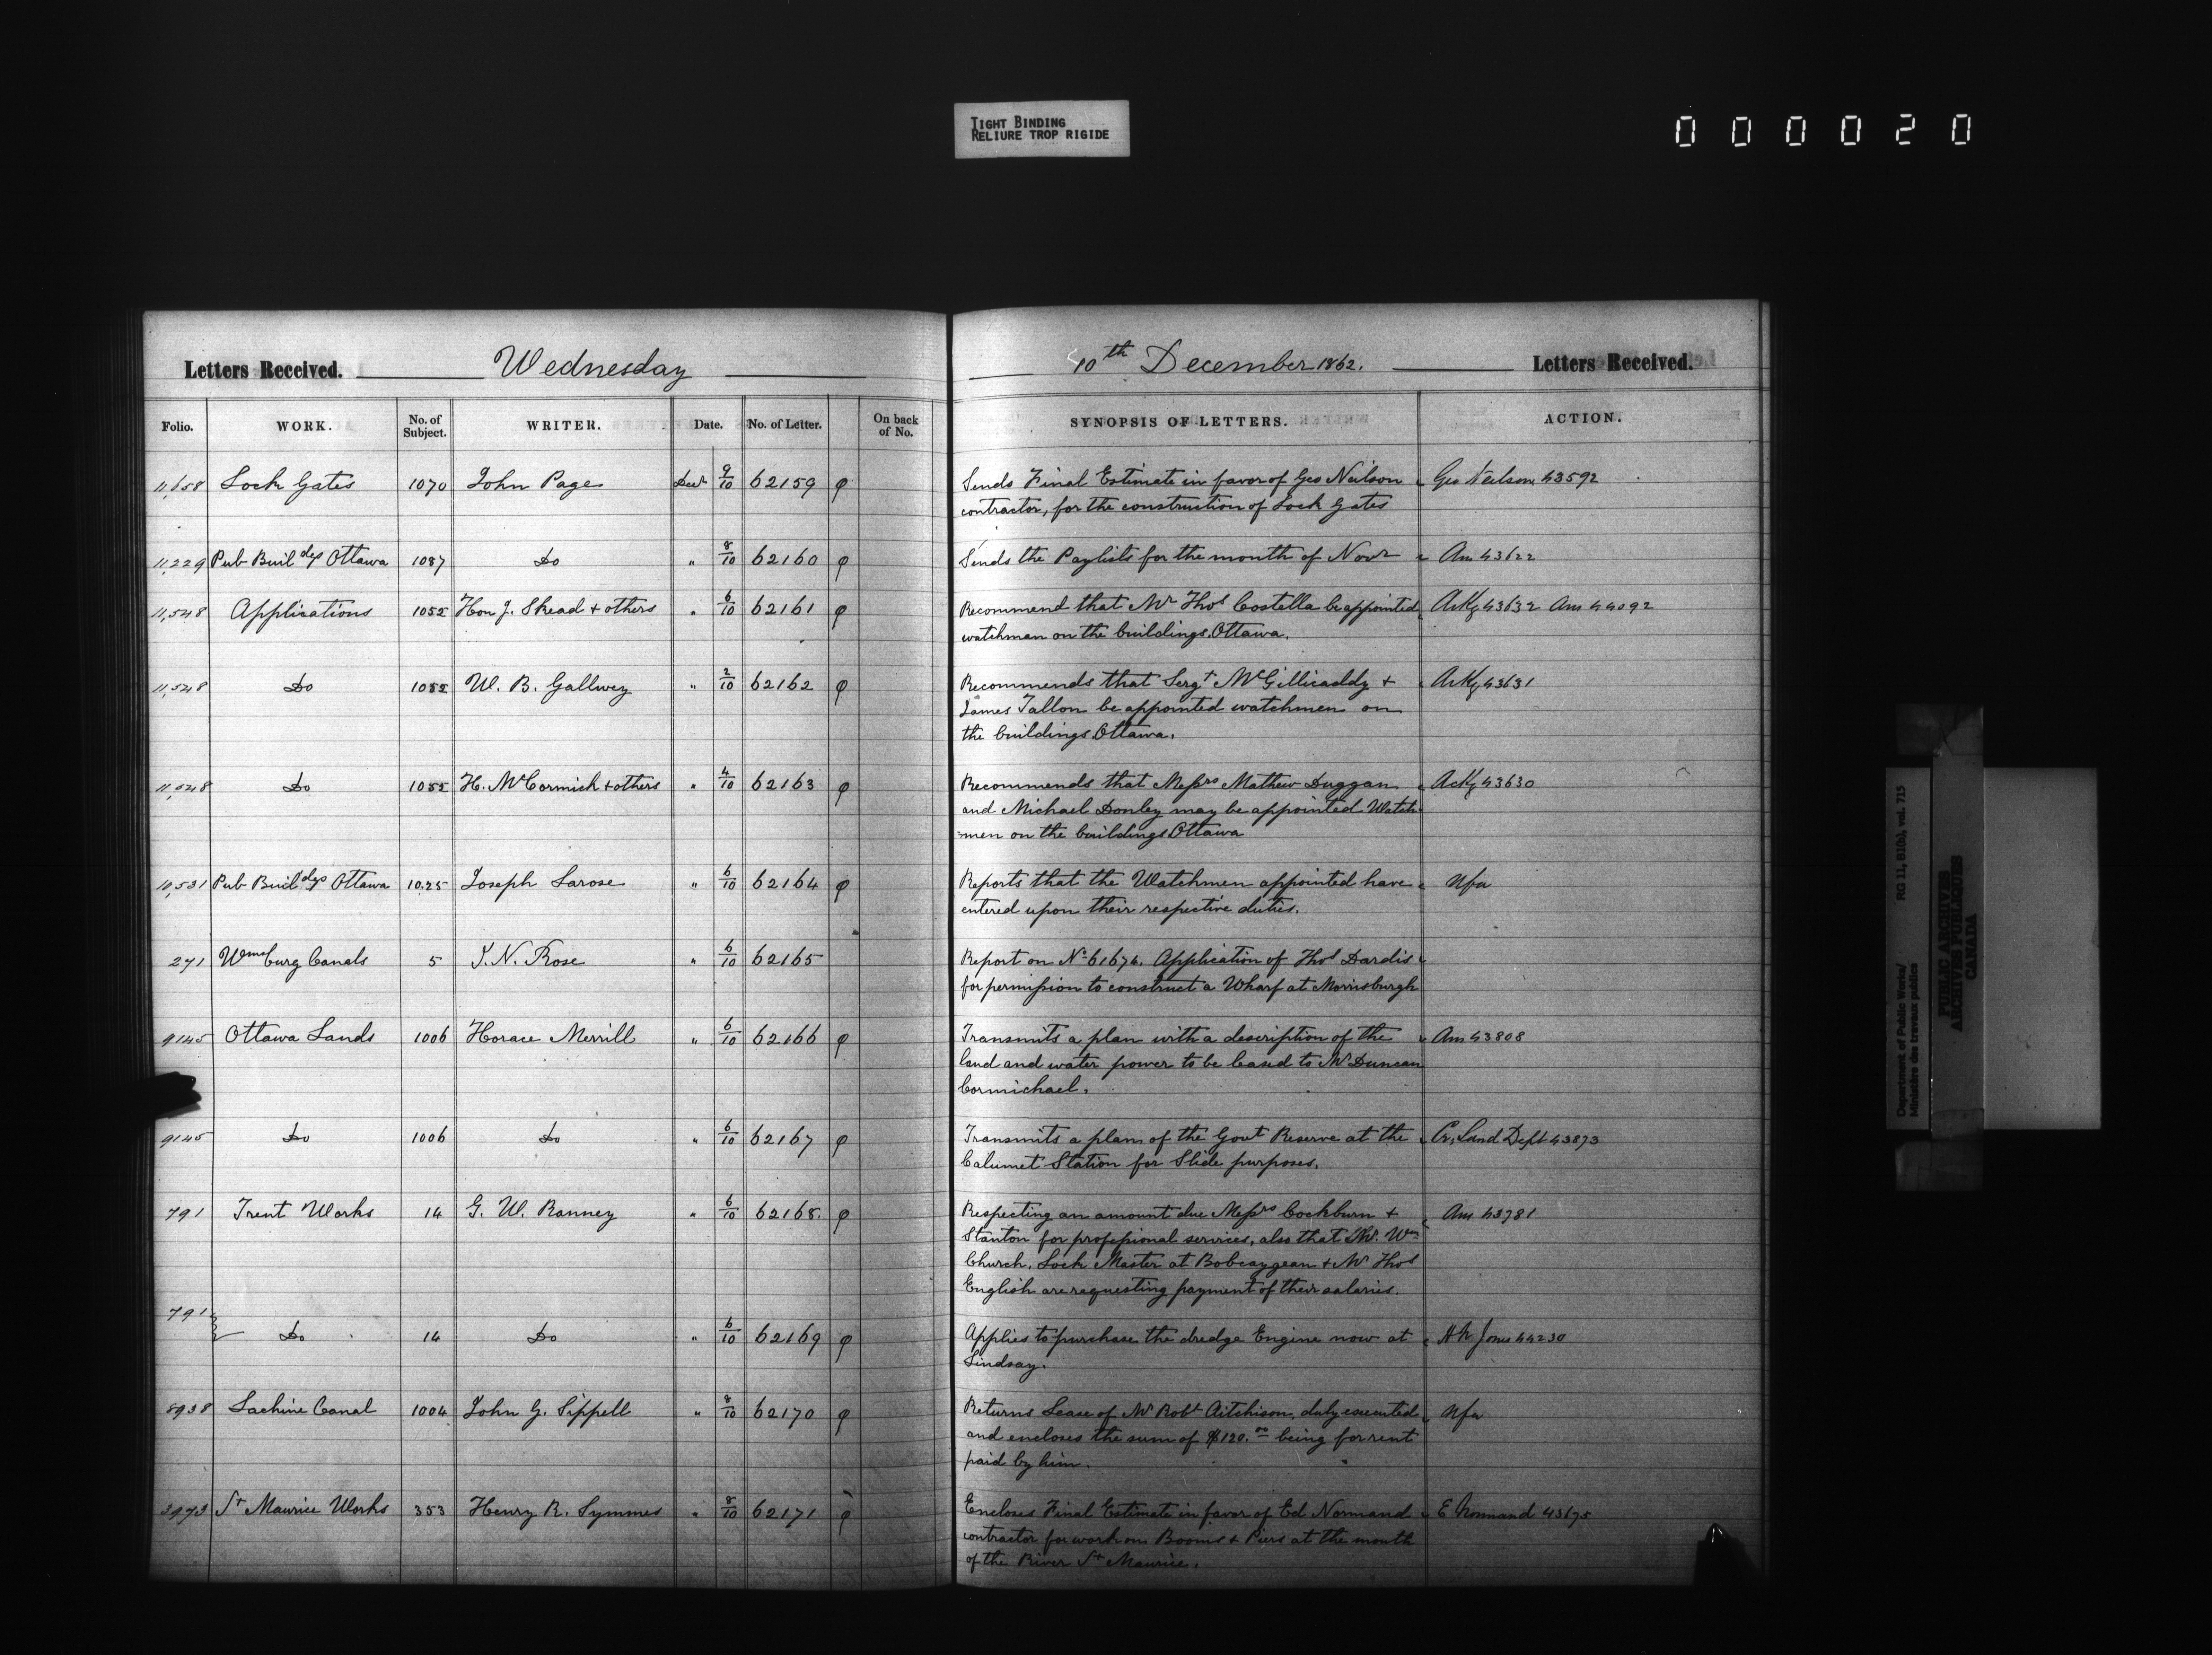 TIGHT BINDING
RELIURE TROP RIGIDE
000020
Letters Received. Wednesday 10th December 1862. Letters Received.
Folio. WORK. No. of Subject. WRITER. Date. No. of Letter. On back of No. SYNOPSIS OF LETTERS. ACTION.
11,658 Lock Gates 1070 John Page Decr 9/10 62159 φ Sends Final Estimate in favor of Geo Neilson Geo Neilson 43592
contractor, for the construction of Lock Gates
11,229 Pub Buildgs Ottawa 1087 Do " 8/10 62160 φ Sends the Paylists for the month of Novr Ans 43622
11,548 Applications 1052 Hon J. Skead + others " 6/10 62161 φ Recommend that Mr Thos Costella be appointed Ackg 43632 Ans 44092
watchman on the buildings, Ottawa.
11,548 Do 1052 W. B. Gallwey " 2/10 62162 φ Recommends that Sergt McGillicaddy + Ackg 43631
James Tallon be appointed watchmen on
the buildings Ottawa.
11,548 Do 1052 H. McCormick + others " 4/10 62163 φ Recommends that Messrs Mathew Duggan Ackg 43630
and Michael Donley may be appointed Watch-
-men on the buildings Ottawa
10,531 Pub Buildgs Ottawa 1025 Joseph Larose " 6/10 62164 φ Reports that the Watchmen appointed have Nfa
entered upon their respective duties.
271 Wmsburg Canals 5 I. N. Rose " 6/10 62165 Report on No 61674. Application of Thos Dardis
for permission to construct a Wharf at Morrisburgh
9145 Ottawa Lands 1006 Horace Merrill " 6/10 62166 φ Transmits a plan with a description of the Ans 43808
land and water power to be leased to Mr Duncan
Cormichael.
9145 Do 1006 Do " 6/10 62167 φ Transmits a plan of the Govt Reserve at the Cr. Land Dept 43873
Calumet Station for Slide purposes.
791 Trent Works 14 G. W. Ranney " 6/10 62168. φ Respecting an amount due Messrs Cockburn + Ans 43781
Stanton for professional services, also that Mr. Wm
Church, Lock Master at Bobcaygean + Mr Thos
English are requesting payment of their salaries.
791 Do 14 Do " 6/10 62169 φ Applies to purchase the dredge Engine now at Jones 44230
Lindsay.
8938 Lachine Canal 1004 John G. Sippell " 8/10 62170 φ Returns Lease of Mr Robt Aitchison, duly executed Nfa
and encloses the sum of $120.00 being for rent
paid by him.
3973 St Maurice Works 353 Henry R. Symmes " 8/10 62171 φ Encloses Final Estimate in favor of Ed Normand E Normand 43675
contractor for work on Booms + Piers at the mouth
of the River St Maurice.
Department of Public Works/ RG 11, B1(b), vol. 715
Ministère des travaux publics
PUBLIC ARCHIVES
ARCHIVES PUBLIQUES
CANADA